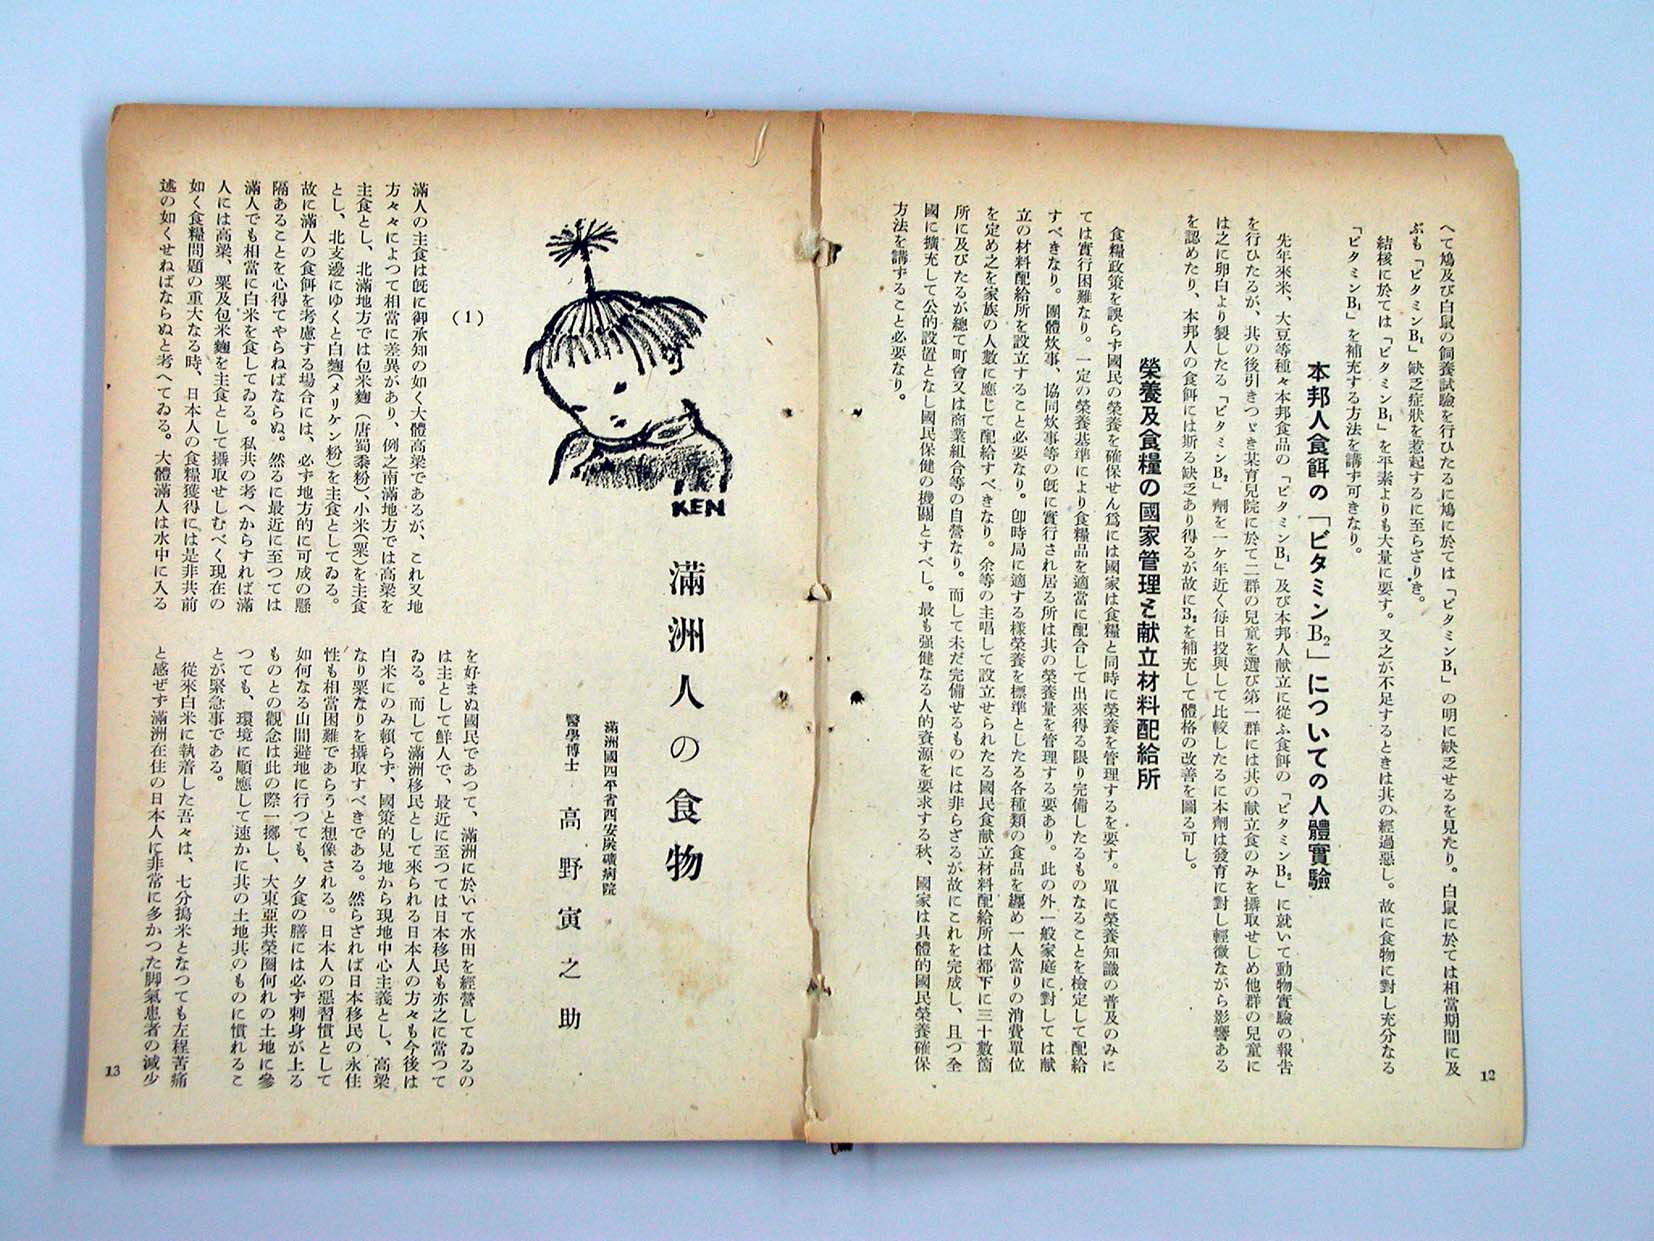 へて鳩及び白鼠の飼養試驗を行ひたるに鳩に於ては「ビタミンB₁」の明に缺乏せるを見たり。白鼠に於ては相當期間に及
ぶも「ビタミンB₁」缺乏症狀を惹起するに至らざりき。
結核に於ては「ビタミンB₁」を平素よりも大量に要す。又之が不足するときは其の經過惡し。故に食物に對し充分なる
「ビタミンB₁」を補充する方法を講ず可きなり。
本邦人食餌の「ビタミンB₂」についての人體實驗
先年來米、大豆等種々本邦食品の「ビタミンB₁」及び本邦人献立に從ふ食餌の「ビタミンB₂」に就いて動物實驗の報告
を行ひたるが、其の後引きつゞき某育兒院に於て二群の兒童を選び第一群には其の献立食のみを攝取せしめ他群の兒童に
は之に卵白より製したる「ビタミンB₂」劑を一ケ年近く每日投與して比較したるに本劑は發育に對し輕微ながら影響ある
を認めたり、本邦人の食餌には斯る缺乏あり得るが故にB₂を補充して體格の改善を圖る可し。
榮養及食糧の國家管理と献立材料配給所
食糧政策を誤らず國民の榮養を確保せん爲には國家は食糧と同時に榮養を管理するを要す。單に榮養知識の普及のみに
ては實行困難なり。一定の榮養基準により食糧品を適當に配合して出來得る限り完備したるものなることを檢定して配給
すべきなり。團體炊事、協同炊事等の既に實行され居る所は其の榮養量を管理する要あり。此の外一般家庭に對しては献
立の材料配給所を設立すること必要なり。卽時局に適する樣榮養を標準としたる各種類の食品を纒め一人當りの消費單位
を定め之を家族の人數に應じて配給すべきなり。余等の主唱して設立せられたる國民食献立材料配給所は都下に三十數箇
所に及びたるが總て町會又は商業組合等の自營なり。而して未だ完備せるものには非らざるが故にこれを完成し、且つ全
國に擴充して公的設置となし國民保健の機關とすべし。最も强健なる人的資源を要求する秋、國家は具體的國民榮養確保
方法を講ずること必要なり。
12
KEN
滿洲人の食物
滿洲國四平省西安炭礦病院
醫學博士 高野寅之助
(1)
滿人の主食は既に御承知の如く大體高梁であるが、これ又地
方々々によつて相當に差異があり、例之南滿地方では高梁を
主食とし、北滿地方では包米麴(唐蜀黍粉)、小米(粟)を主食
とし、北支邊にゆくと白麴(メリケン粉)を主食としてゐる。
故に滿人の食餌を考慮する場合には、必ず地方的に可成の懸
隔あることを心得てやらねばならぬ。然るに最近に至つては
滿人でも相當に白米を食してゐる。私共の考へからすれば滿
人には高梁、粟及包米麴を主食として攝取せしむべく現在の
如く食糧問題の重大なる時、日本人の食糧獲得には是非共前
述の如くせねばならぬと考へてゐる。大體滿人は水中に入る
を好まぬ國民であつて、滿洲に於いて水田を經營してゐるの
は主として鮮人で、最近に至つては日本移民も亦之に當つて
ゐる。而して滿洲移民として來られる日本人の方々も今後は
白米にのみ賴らず、國策的見地から現地中心主義とし、高梁
なり粟なりを攝取すべきである。然らざれば日本移民の永住
性も相當困難であらうと想像される。日本人の惡習慣として
如何なる山間避地に行つても、夕食の膳には必ず刺身が上る
ものとの觀念は此の際一擲し、大東亞共榮圈何れの土地に參
つても、環境に順應して速かに其の土地其のものに慣れるこ
とが緊急事である。
從來白米に執着した吾々は、七分搗米となつても左程苦痛
と感ぜず滿洲在住の日本人に非常に多かつた脚氣患者の減少
13